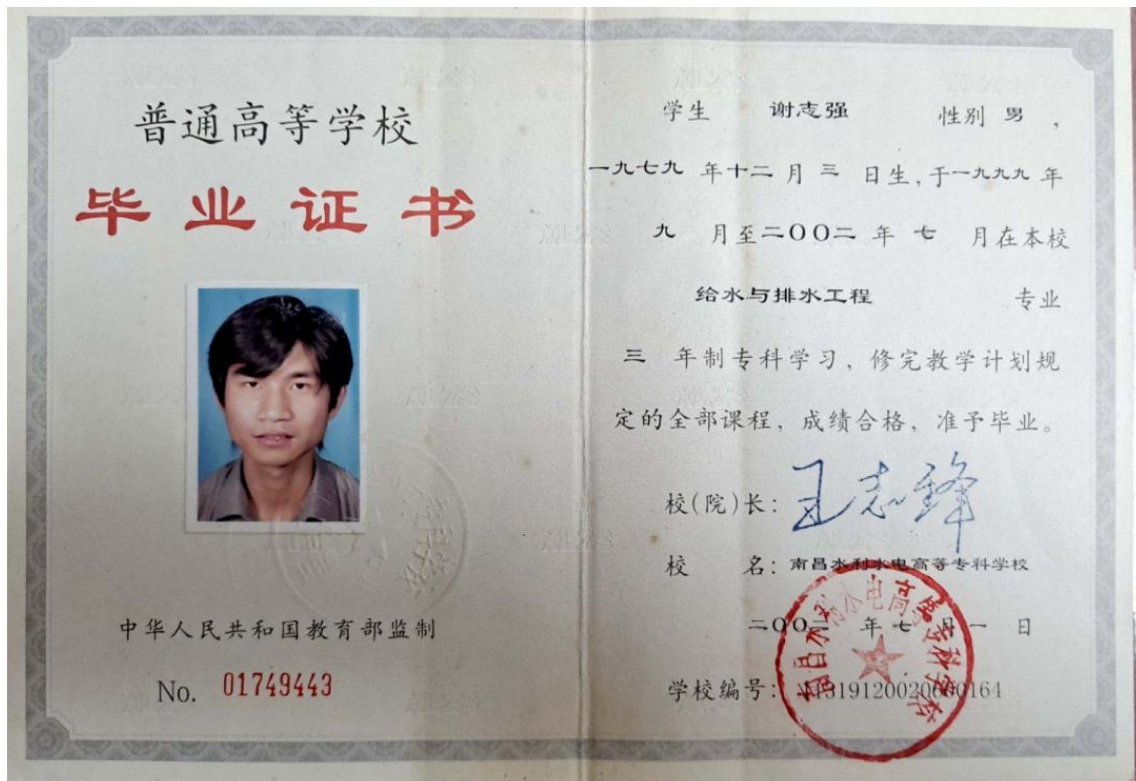 普通高等学校
毕业证书
中华人民共和国教育部监制
No. 01749443
学生 谢志强 性别 男 ,
一九七九 年十二月 三 日生,于一九九九 年
九 月至二〇〇二 年 七 月在本校
给水与排水工程 专业
三 年制专科学习，修完教学计划规
定的全部课程，成绩合格，准予毕业。
校(院)长: 王志锋
校 名: 南昌水利水电高等专科学校
二〇〇二 年 七 月 一 日
学校编号:
南昌水利水电高等专科学校